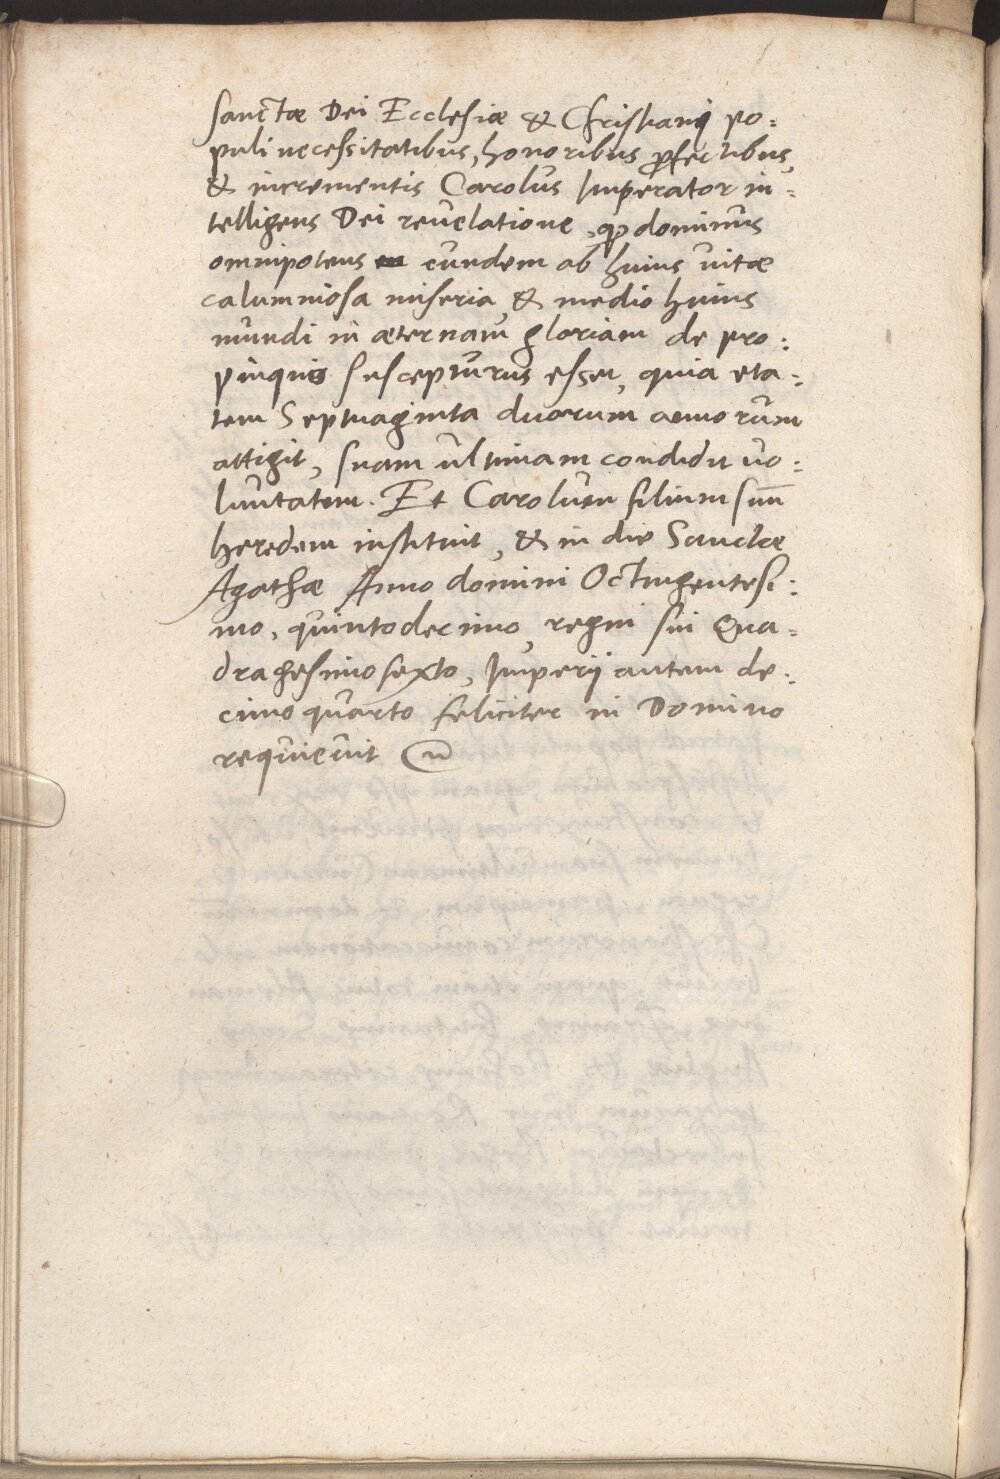 Sanctæ Dei Ecclesiæ & Christianij po:
puli necessitatibus, honoribus ꝓfectibus,
& incrementis Carolus Imperator in:
telligens Dei reuelatione, ꝙ dominus
omnipotens eundem ab huius uitæ
calumniosa miseria, & medio huius
mundi in æternam gloriam de pro:
pinquo suscepturus esset, quia eta:
tem Septuaginta duorum annorum
attigit, suam ultimam condidit uo:
luntatem. Et Carolum filium suū
heredem instituit, & in die Sanctæ
Agathæ Anno domini Octingentesi:
mo, quintodecimo, regni sui Qua:
dragesimo sexto, Imperij autem de:
cimo quarto feliciter in Domino
requieuit